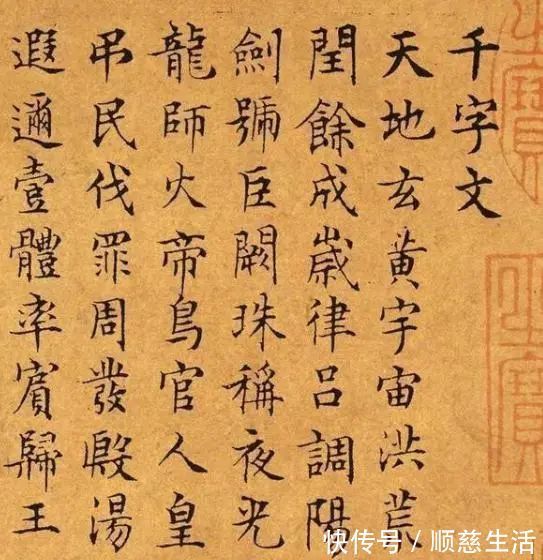 千字文
天地玄黄宇宙洪荒
閏餘成歲律呂調陽
劍號巨闕珠稱夜光
龍師火帝鳥官人皇
吊民伐罪周發殷湯
遐邇壹體率賓歸王
快传号 / 顺慈生活